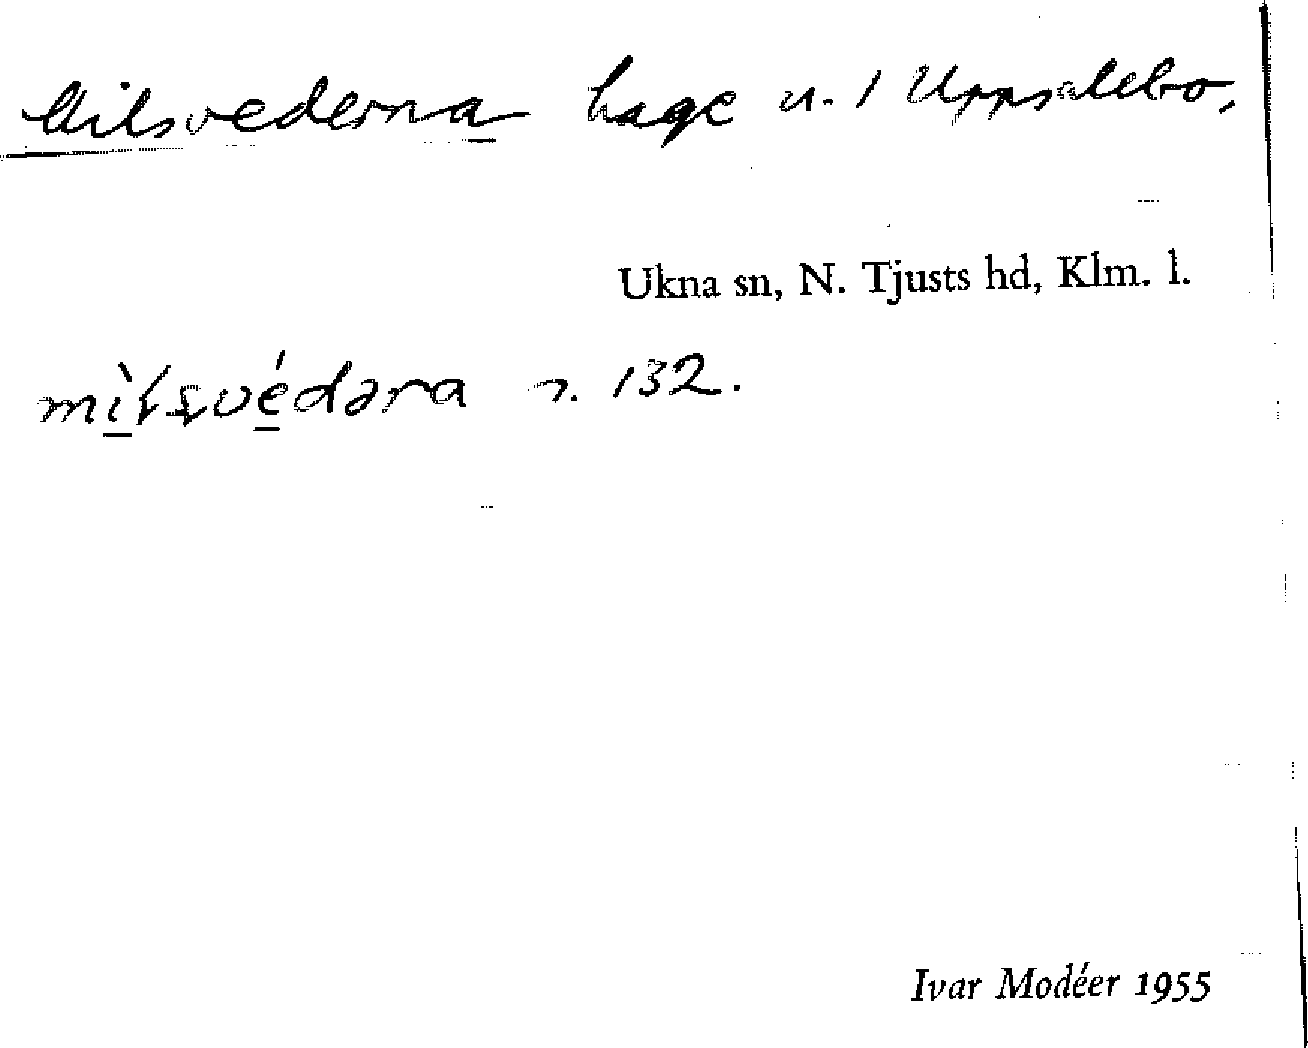 Milsvederna hage u. / Uppsalebo,
Ukna sn, N. Tjusts hd, Klm. l.
mìlsvédəra n. 132.
Ivar Modéer 1955